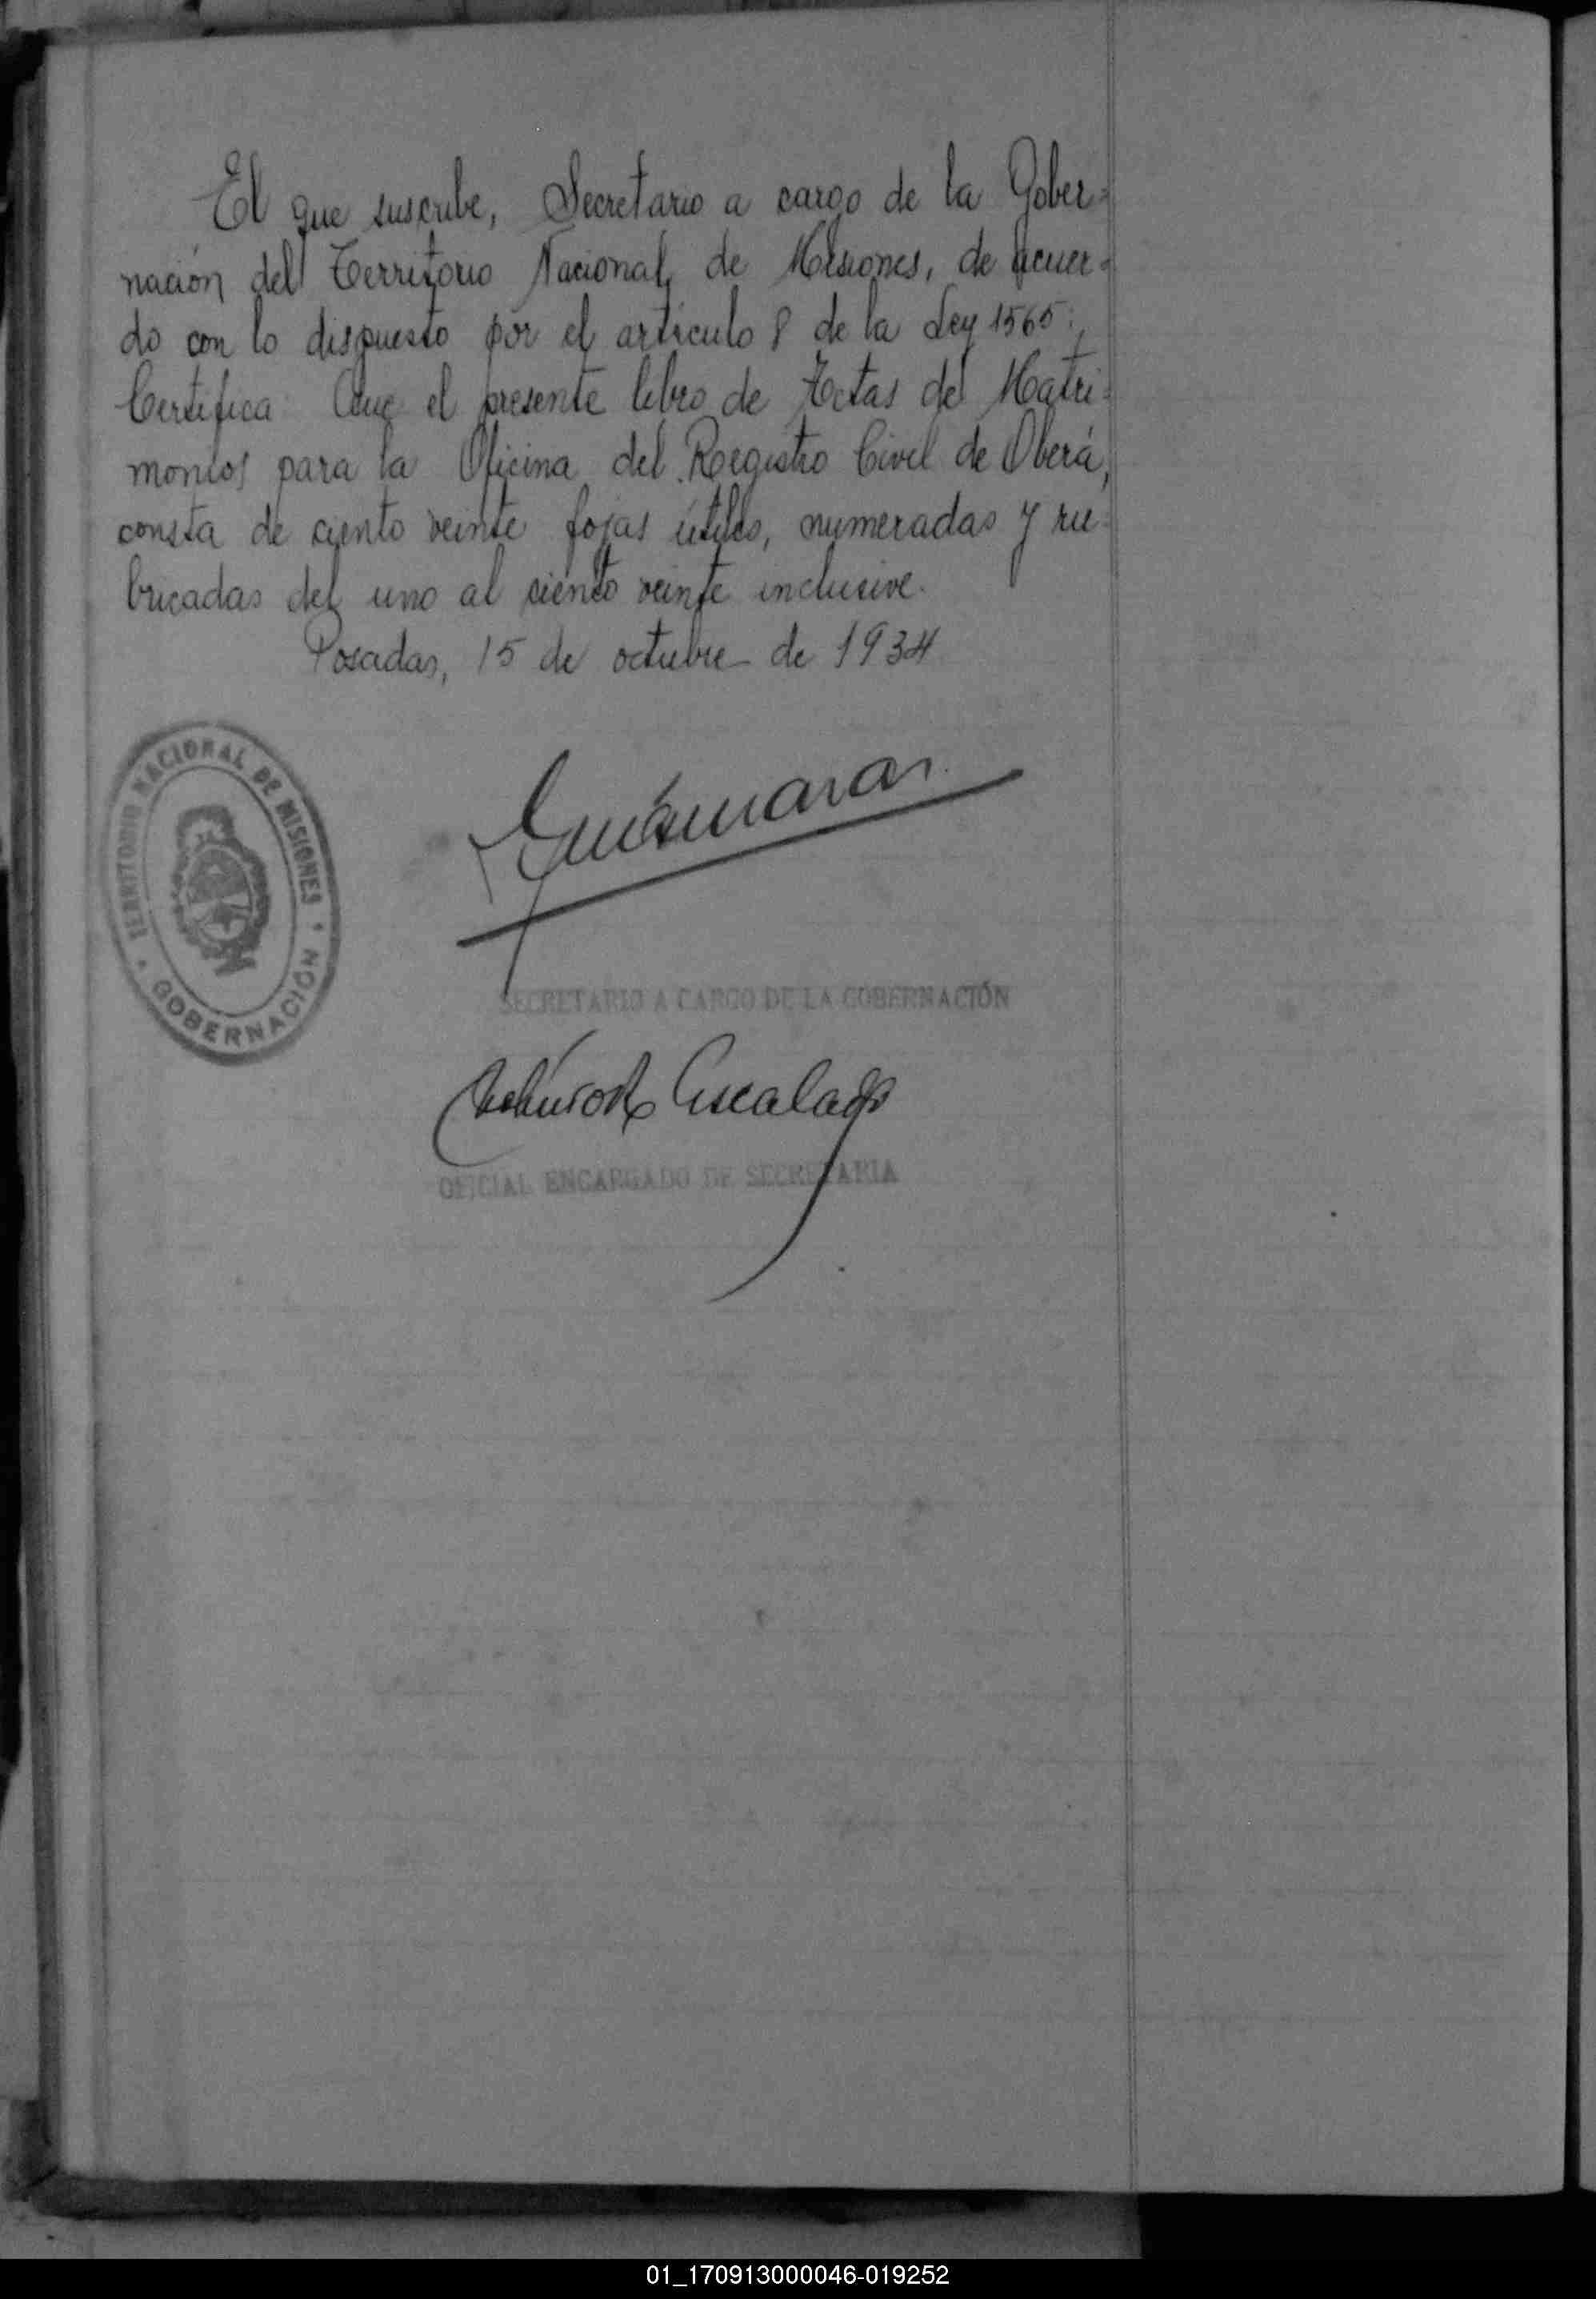 El que suscribe, Secretario a cargo de la Gober-
nación del Territorio Nacional de Misiones, de acuer-
do con lo dispuesto por el artículo 8 de la Ley 1565:,
Certifica: Que el presente libro de Actas de Matri-
monios para la Oficina del Registro Civil de Oberá,
consta de ciento veinte fojas útiles, numeradas y ru-
bricadas del uno al ciento veinte inclusive.
Posadas, 15 de octubre de 1934
TERRITORIO NACIONAL DE MISIONES
GOBERNACIÓN
SECRETARIO A CARGO DE LA GOBERNACIÓN
Escalada
OFICIAL ENCARGADO DE SECRETARIA
01_170913000046-019252